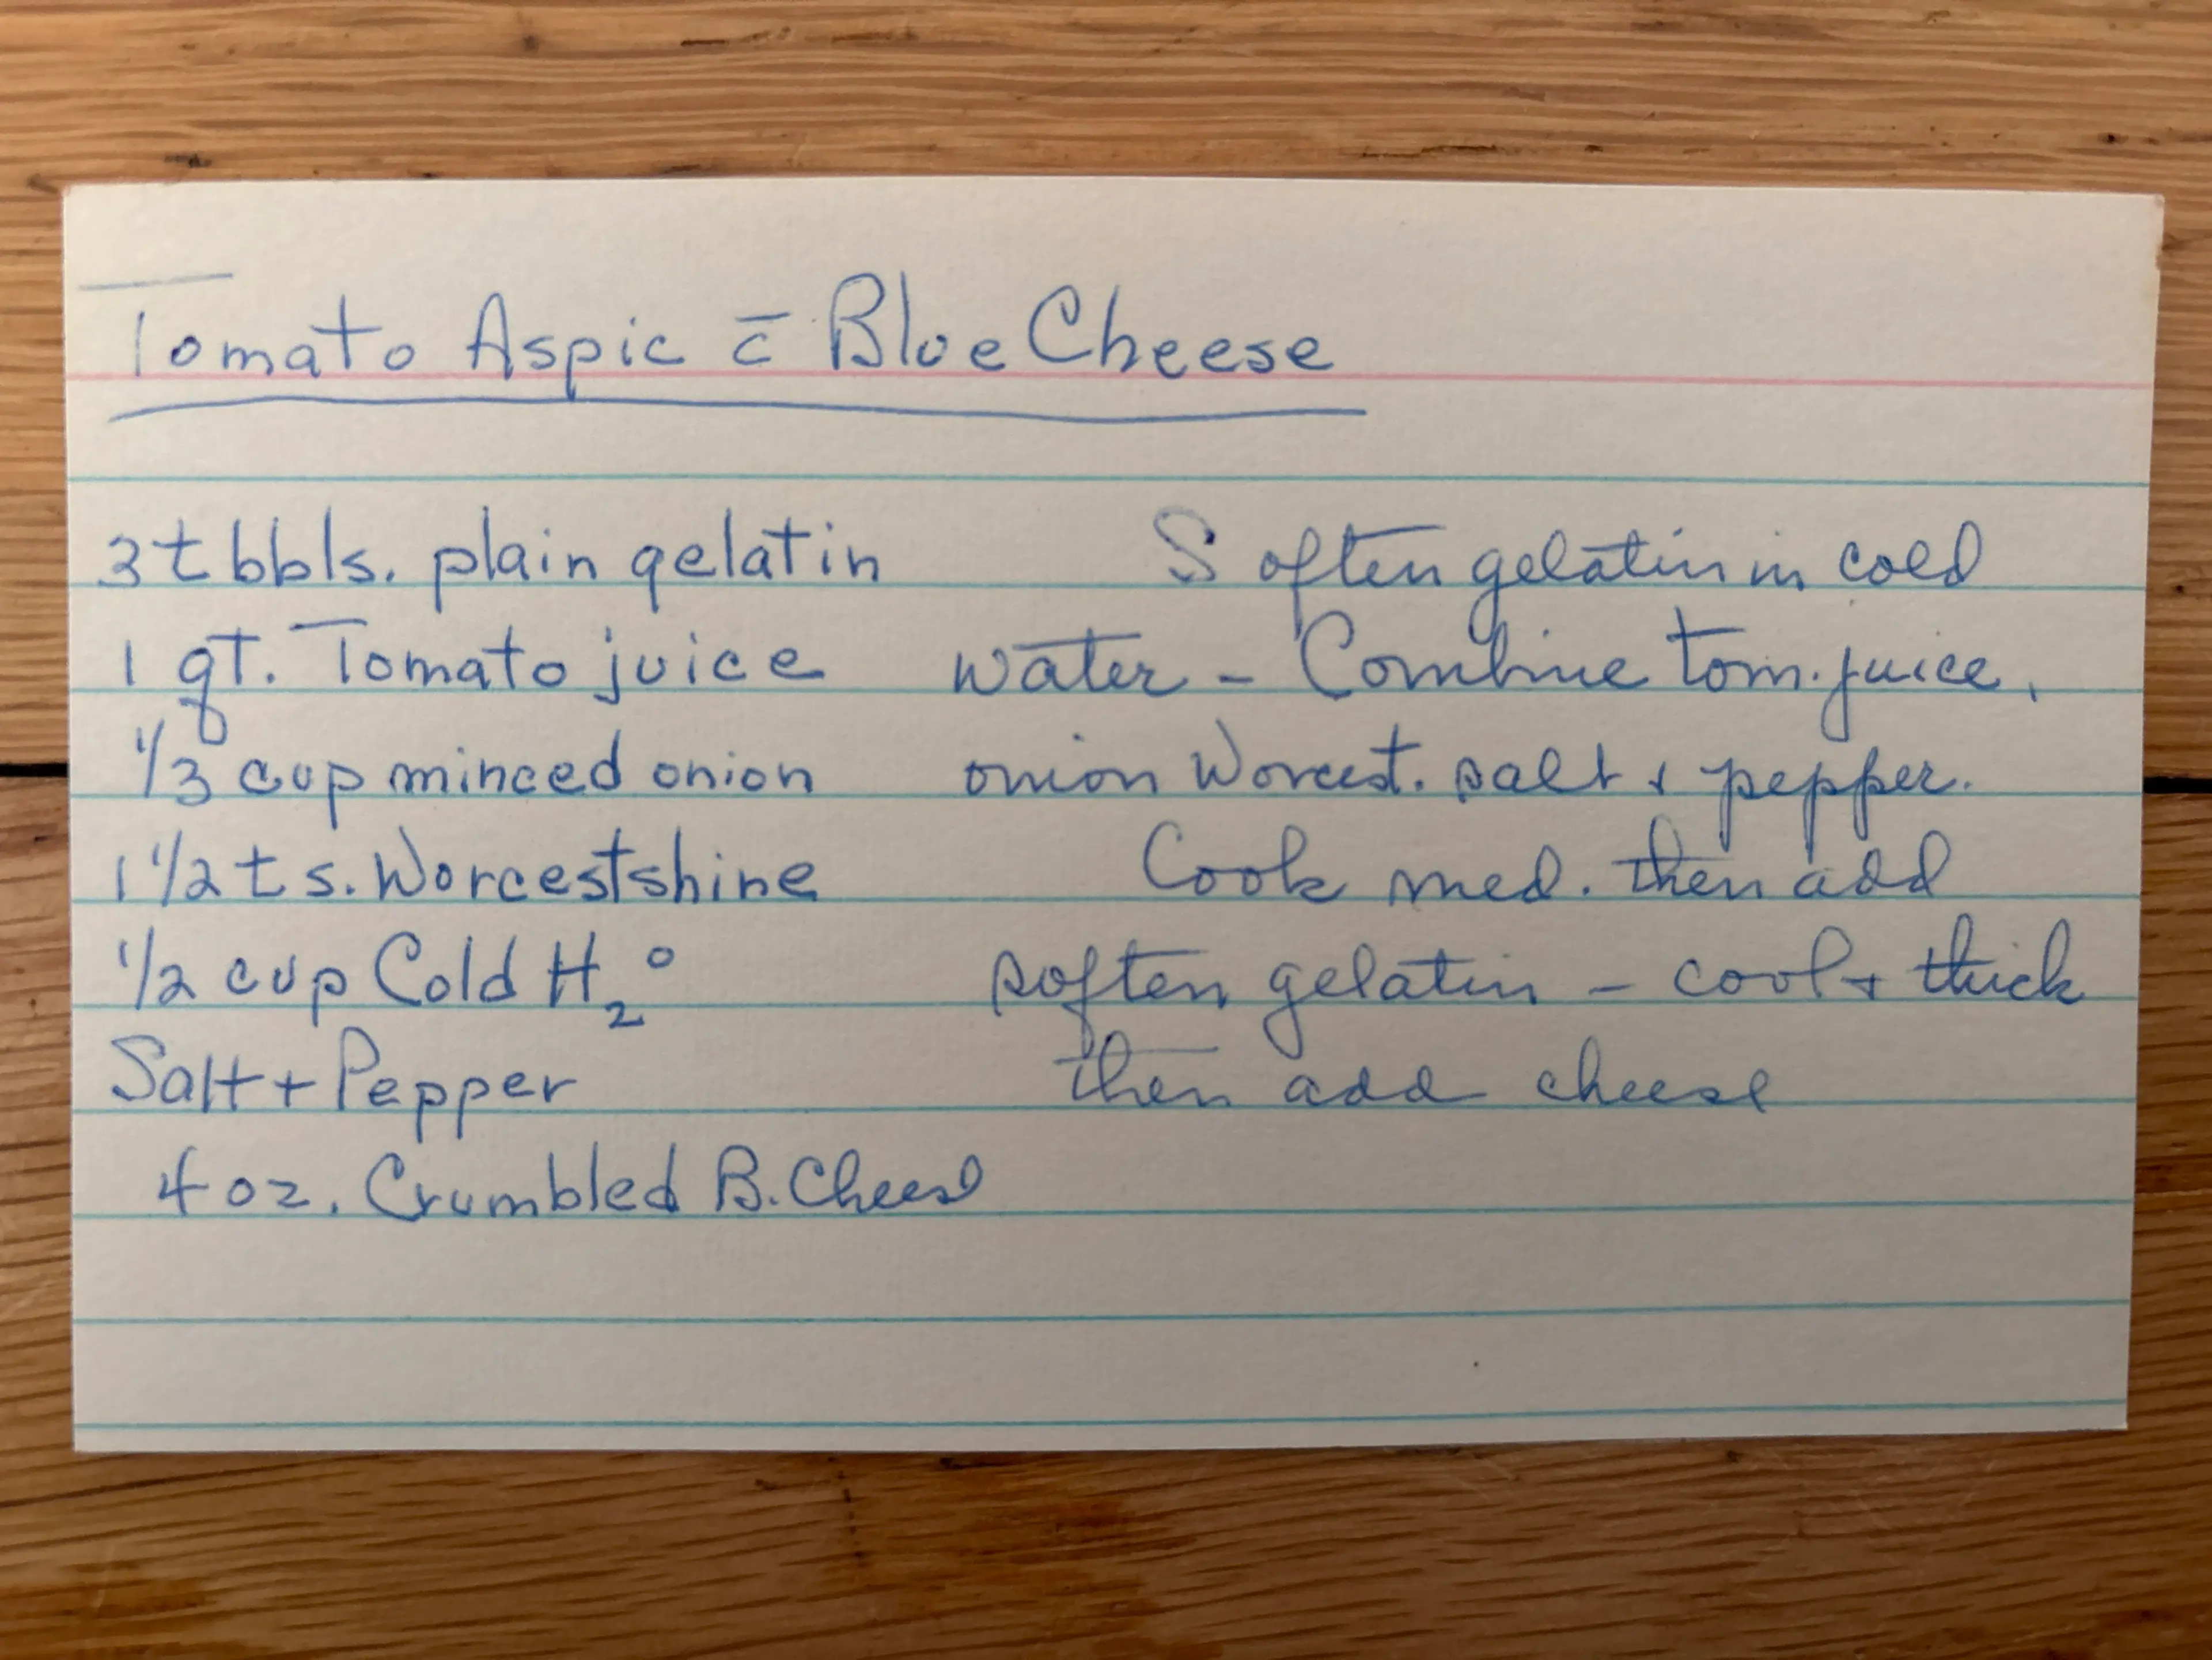 Tomato Aspic c̄ Blue Cheese
3 tbbls. plain gelatin
1 qt. Tomato juice
1/3 cup minced onion
1 1/2 ts. Worcestshine
1/2 cup Cold H₂O
Salt + Pepper
4 oz. Crumbled B. Cheese
Soften gelatin in cold
water - Combine tom. juice,
onion Worcest. salt + pepper.
Cook med. then add
soften gelatin - cool + thick
then add cheese